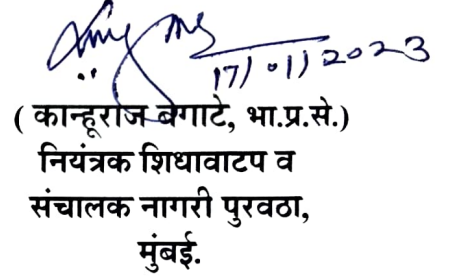 17/01/2023
( कान्हूराज बगाटे, भा.प्र.से.)
नियंत्रक शिधावाटप व
संचालक नागरी पुरवठा,
मुंबई.